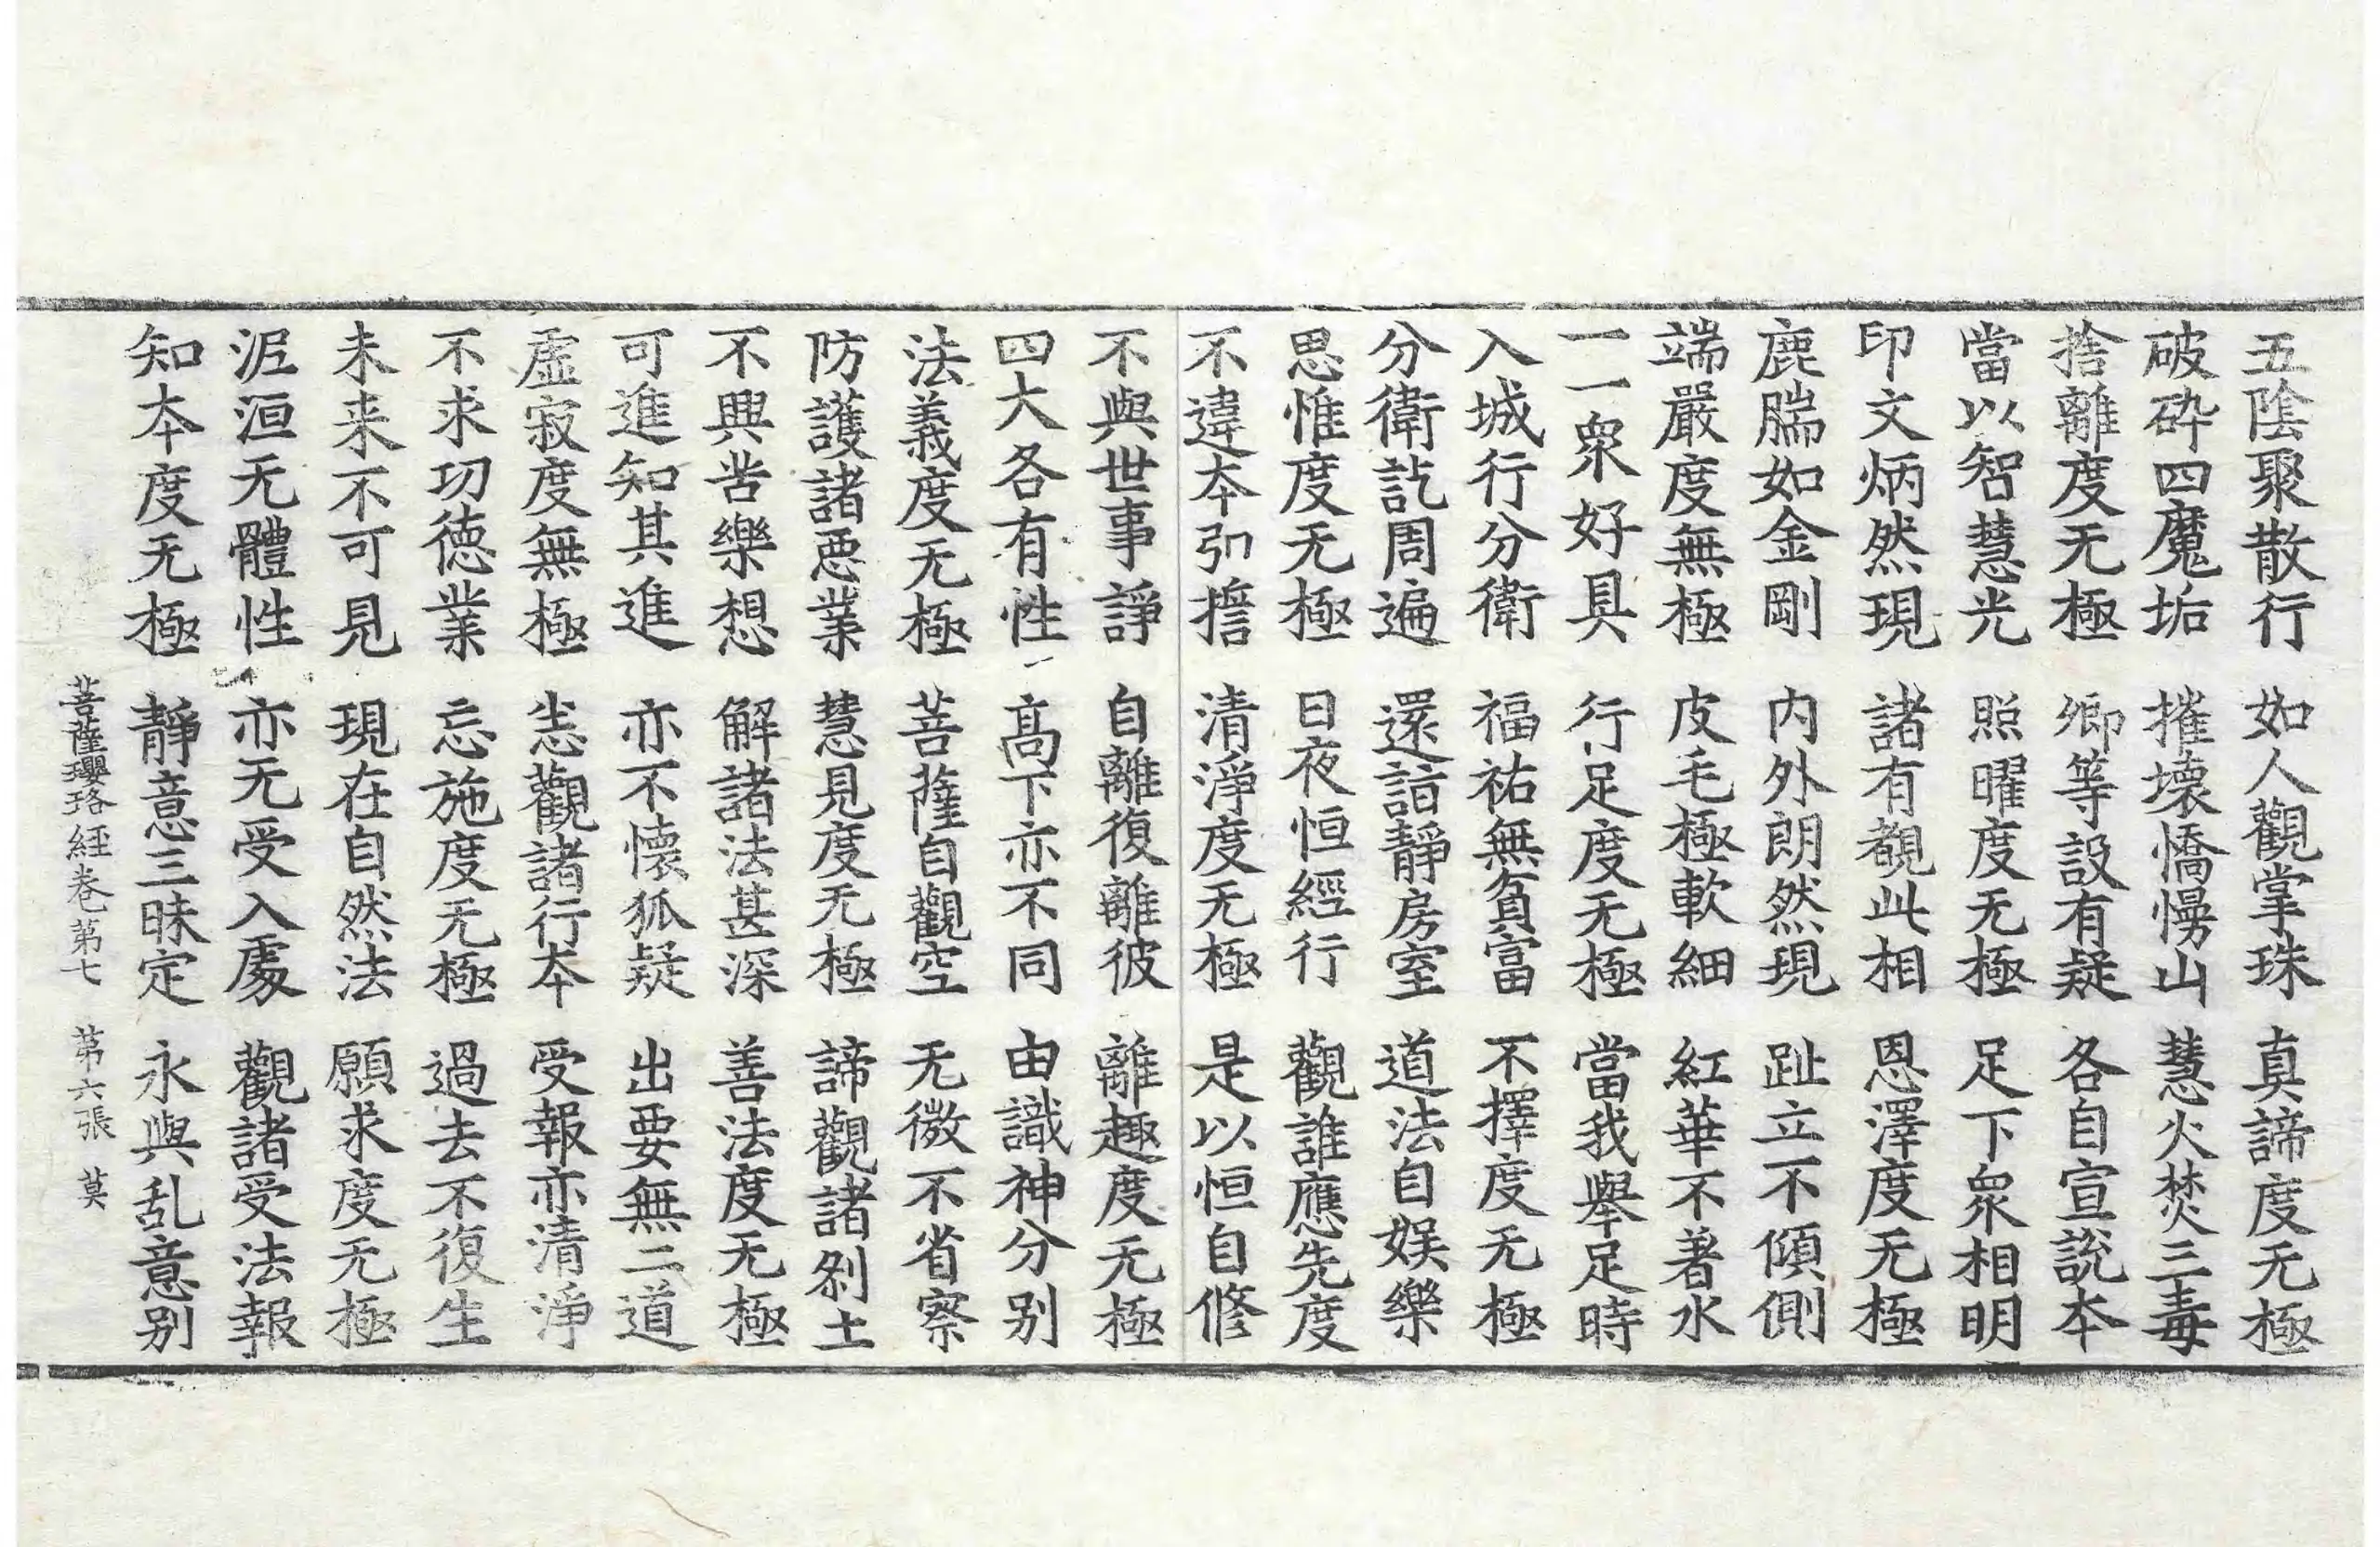 五陰聚散行 如人觀掌珠 真諦度无極
破碎四魔垢 摧壞憍慢山 慧火焚三毒
捨離度无極 卿等設有疑 各自宣說本
當以智慧光 照曜度无極 足下衆相明
印文炳然現 諸有覩此相 恩澤度无極
鹿腨如金剛 内外朗然現 趾立不傾側
端嚴度無極 皮毛極軟細 紅華不著水
一一衆好具 行足度无極 當我舉足時
入城行分衛 福祐無貧富 不擇度无極
分衛訖周遍 還詣靜房室 道法自娛樂
思惟度无極 日夜恒經行 觀誰應先度
不違本弘誓 清淨度无極 是以恒自修
不與世事諍 自離復離彼 離趣度无極
四大各有性 高下亦不同 由識神分别
法義度无極 菩薩自觀空 无微不省察
防護諸惡業 慧見度无極 諦觀諸刹土
不興苦樂想 解諸法甚深 善法度无極
可進知其進 亦不懷狐疑 出要無二道
虛寂度無極 恙觀諸行本 受報亦清淨
不求功德業 忘施度无極 過去不復生
未来不可見 現在自然法 願求度无極
泥洹无體性 亦无受入處 觀諸受法報
知本度无極 靜意三昧定 永與乱意别
菩薩瓔珞經卷第七 第六張 莫